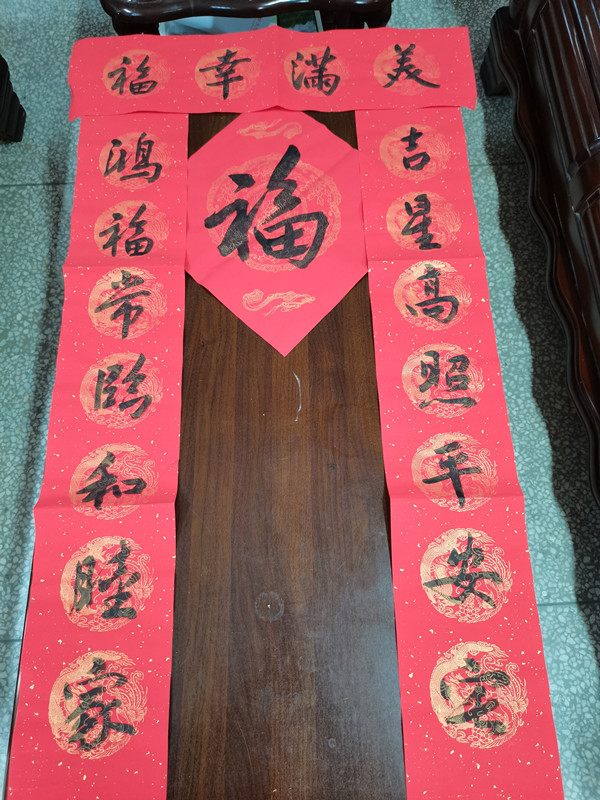 美滿幸福
吉星高照平安宅
鴻福常臨和睦家
福